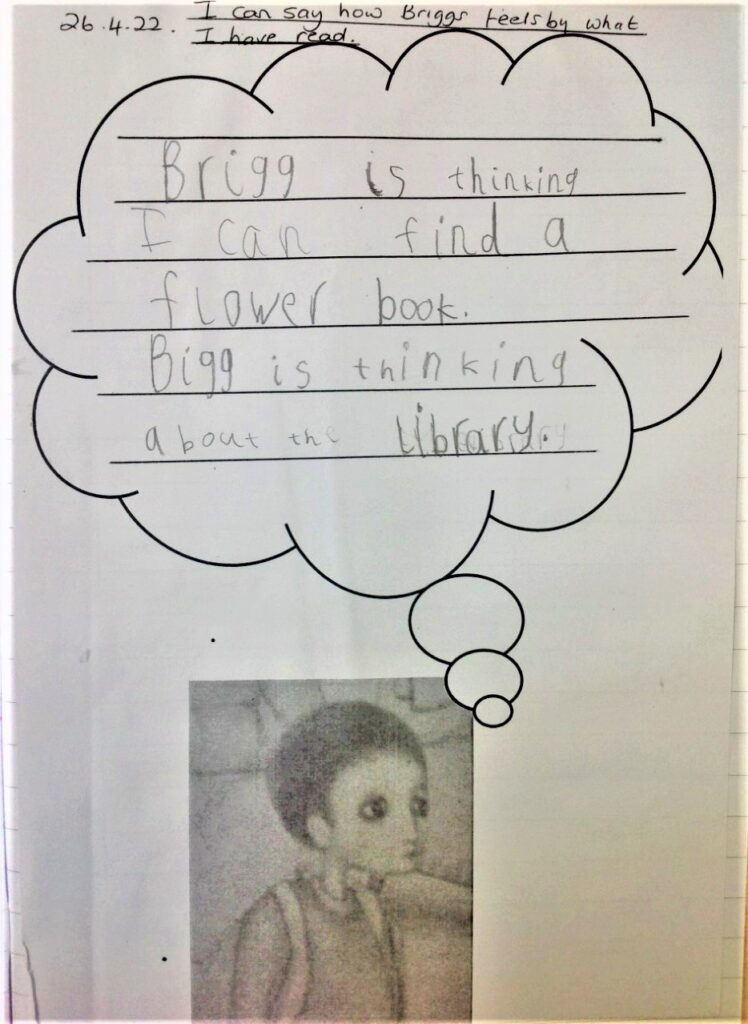 26.4.22. I can say how Briggs feels by what
I have read.
Brigg is thinking
I can find a
flower book.
Bigg is thinking
about the library.